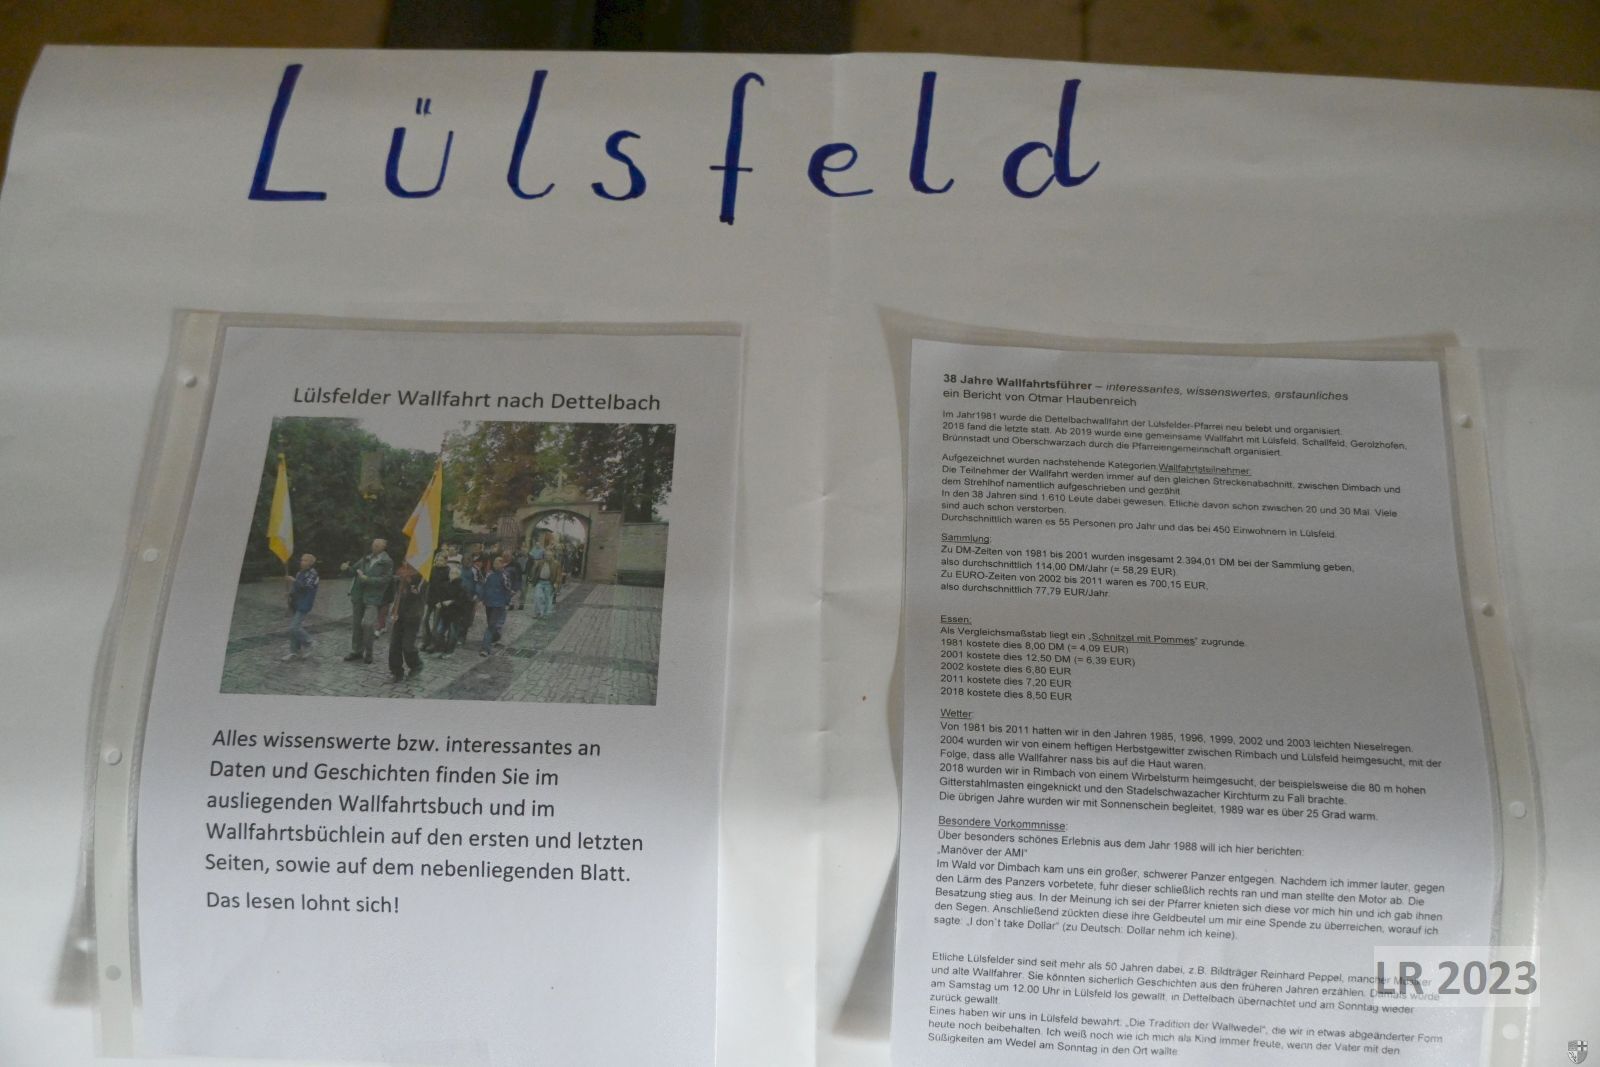 Lülsfeld
Lülsfelder Wallfahrt nach Dettelbach
Alles wissenswerte bzw. interessantes an
Daten und Geschichten finden Sie im
ausliegenden Wallfahrtsbuch und im
Wallfahrtsbüchlein auf den ersten und letzten
Seiten, sowie auf dem nebenliegenden Blatt.
Das lesen lohnt sich!
38 Jahre Wallfahrtsführer – interessantes, wissenswertes, erstaunliches
ein Bericht von Otmar Haubenreich
Im Jahr1981 wurde die Dettelbachwallfahrt der Lülsfelder-Pfarrei neu belebt und organisiert.
2018 fand die letzte statt. Ab 2019 wurde eine gemeinsame Wallfahrt mit Lülsfeld, Schallfeld, Gerolzhofen,
Brünnstadt und Oberschwarzach durch die Pfarreiengemeinschaft organisiert.
Aufgezeichnet wurden nachstehende Kategorien:Wallfahrtsteilnehmer:
Die Teilnehmer der Wallfahrt werden immer auf den gleichen Streckenabschnitt, zwischen Dimbach und
dem Strehlhof namentlich aufgeschrieben und gezählt.
In den 38 Jahren sind 1.610 Leute dabei gewesen. Etliche davon schon zwischen 20 und 30 Mal. Viele
sind auch schon verstorben.
Durchschnittlich waren es 55 Personen pro Jahr und das bei 450 Einwohnern in Lülsfeld.
Sammlung:
Zu DM-Zeiten von 1981 bis 2001 wurden insgesamt 2.394,01 DM bei der Sammlung geben,
also durchschnittlich 114,00 DM/Jahr (= 58,29 EUR).
Zu EURO-Zeiten von 2002 bis 2011 waren es 700,15 EUR,
also durchschnittlich 77,79 EUR/Jahr.
Essen:
Als Vergleichsmaßstab liegt ein „Schnitzel mit Pommes“ zugrunde.
1981 kostete dies 8,00 DM (= 4,09 EUR)
2001 kostete dies 12,50 DM (= 6,39 EUR)
2002 kostete dies 6,80 EUR
2011 kostete dies 7,20 EUR
2018 kostete dies 8,50 EUR
Wetter:
Von 1981 bis 2011 hatten wir in den Jahren 1985, 1996, 1999, 2002 und 2003 leichten Nieselregen.
2004 wurden wir von einem heftigen Herbstgewitter zwischen Rimbach und Lülsfeld heimgesucht, mit der
Folge, dass alle Wallfahrer nass bis auf die Haut waren.
2018 wurden wir in Rimbach von einem Wirbelsturm heimgesucht, der beispielsweise die 80 m hohen
Gitterstahlmasten eingeknickt und den Stadelschwazacher Kirchturm zu Fall brachte.
Die übrigen Jahre wurden wir mit Sonnenschein begleitet, 1989 war es über 25 Grad warm.
Besondere Vorkommnisse:
Über besonders schönes Erlebnis aus dem Jahr 1988 will ich hier berichten:
„Manöver der AMI“
Im Wald vor Dimbach kam uns ein großer, schwerer Panzer entgegen. Nachdem ich immer lauter, gegen
den Lärm des Panzers vorbetete, fuhr dieser schließlich rechts ran und man stellte den Motor ab. Die
Besatzung stieg aus. In der Meinung ich sei der Pfarrer knieten sich diese vor mich hin und ich gab ihnen
den Segen. Anschließend zückten diese ihre Geldbeutel um mir eine Spende zu überreichen, worauf ich
sagte: „I don´t take Dollar“ (zu Deutsch: Dollar nehm ich keine).
Etliche Lülsfelder sind seit mehr als 50 Jahren dabei, z.B. Bildträger Reinhard Peppel, mancher Musiker
und alte Wallfahrer. Sie könnten sicherlich Geschichten aus den früheren Jahren erzählen. Damals wurde
am Samstag um 12.00 Uhr in Lülsfeld los gewallt, in Dettelbach übernachtet und am Sonntag wieder
zurück gewallt.
Eines haben wir uns in Lülsfeld bewahrt: „Die Tradition der Wallwedel“, die wir in etwas abgeänderter Form
heute noch beibehalten. Ich weiß noch wie ich mich als Kind immer freute, wenn der Vater mit den
Süßigkeiten am Wedel am Sonntag in den Ort wallte.
LR 2023